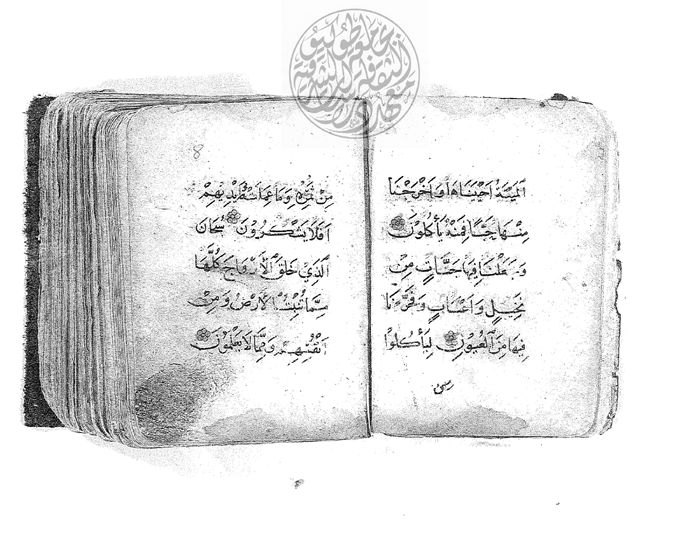 الْمَيْتَةُ اَحْيَيْنَاهَا وَاَخْرَجْنَا
مِنْهَا حَبًّا فَمِنْهُ يَأْكُلُونَ
وَجَعَلْنَا فِيهَا جَنَّاتٍ مِنْ
نَخِيلٍ وَاَعْنَابٍ وَفَجَّرْنَا
فِيهَا مِنَ الْعُيُونِ لِيَأْكُلُوا
8
مِنْ ثَمَرِهِ وَمَا عَمِلَتْهُ اَيْدِيهِمْ
اَفَلَا يَشْكُرُونَ سُبْحَانَ
الَّذِي خَلَقَ الْاَزْوَاجَ كُلَّهَا
مِمَّا تُنْبِتُ الْاَرْضُ وَمِنْ
اَنْفُسِهِمْ وَمِمَّا لَا يَعْلَمُونَ